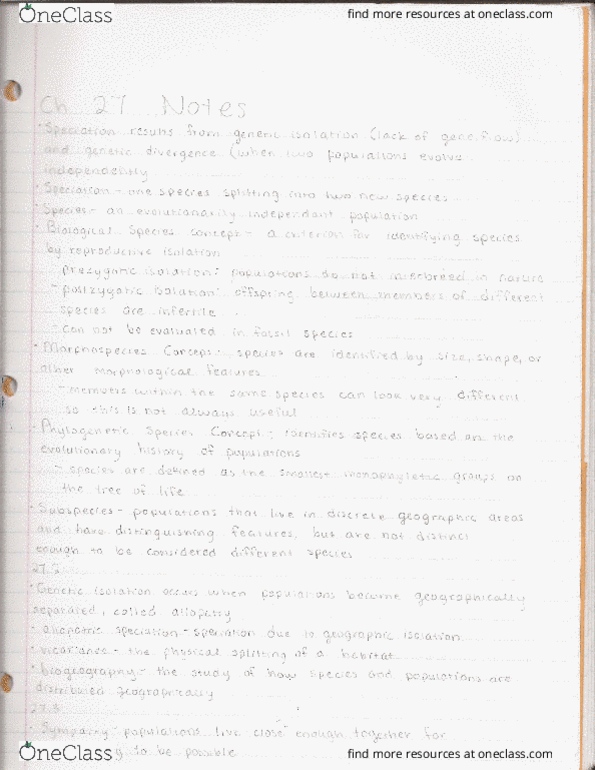 OneClass
find more resources at oneclass.com
Ch 27 Notes
• Speciation results from genetic isolation (lack of gene flow)
and genetic divergence (when two populations evolve
independently
• Speciation - one species splitting into two new species
• Species - an evolutionarily independant population
• Biological Species concept - a criterion for identifying species
by reproductive isolation
- prezygotic isolation: populations do not interbreed in nature
- postzygotic isolation: offspring between members of different
species are infertile
- can not be evaluated in fossil species
• Morphospecies Concept - species are identified by size, shape, or
other morphological features
- members within the same species can look very different
so this is not always useful
• Phylogenetic Species Concept - identifies species based on the
evolutionary history of populations
- species are defined as the smallest monophyletic groups on
the tree of life
• Subspecies - populations that live in discrete geographic areas
and have distinguishing features, but are not distinct
enough to be considered different species
27.2
• Genetic isolation occurs when populations become geographically
separated, called allopatry
• allopatric speciation - speciation due to geographic isolation
• vicariance - the physical splitting of a habitat
• biogeography - the study of how species and populations are
distributed geographically
27.3
• Sympatry - populations live close enough together for
to be possible
OneClass
find more resources at oneclass.com